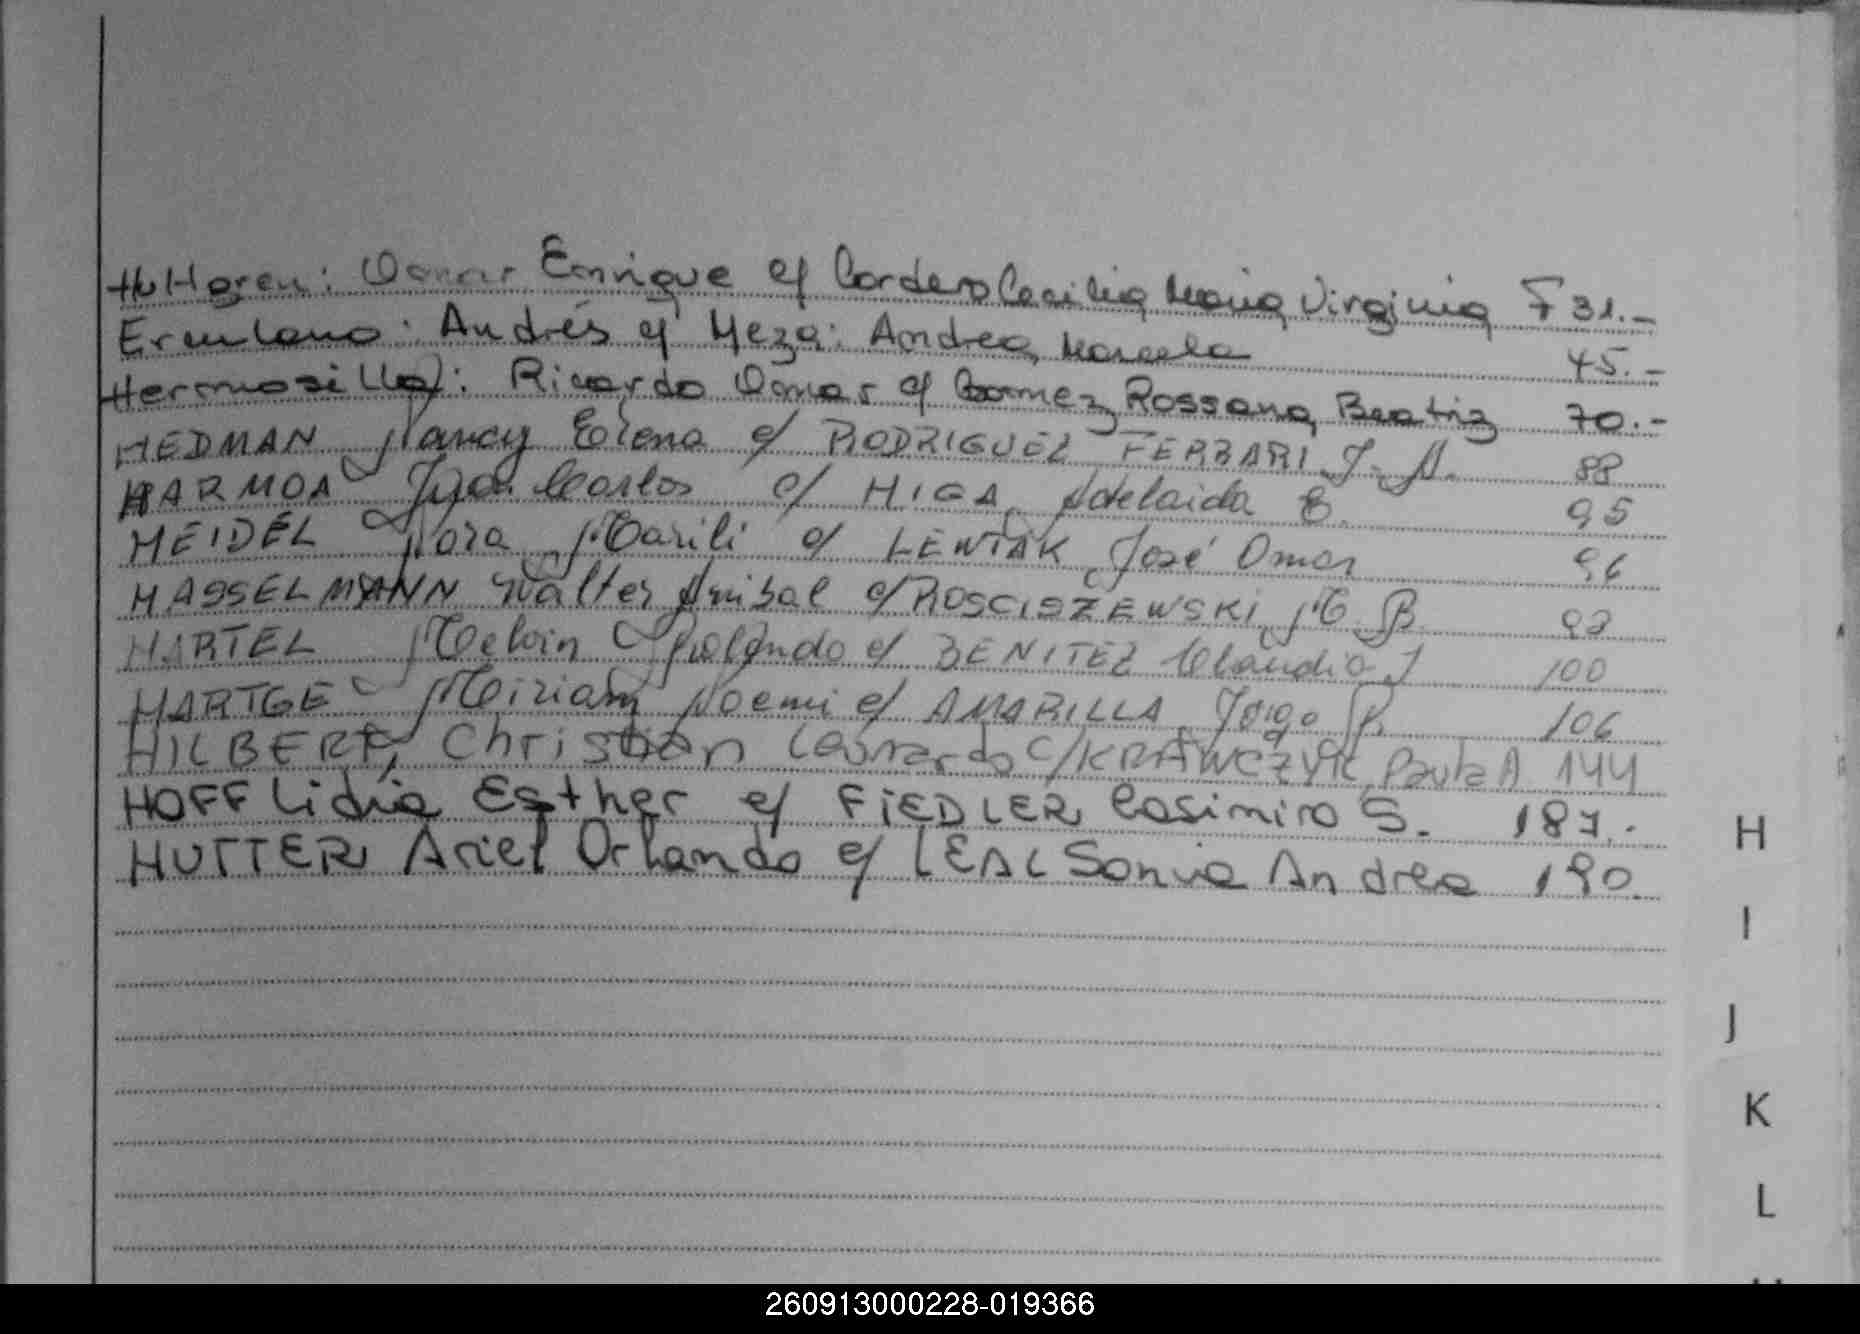 Huttgren: Osmar Enrique c/ Cordero Cecilia Maria Virginia F 31.-
Ermlano: Andrés c/ Meza: Andrea Marcela 45.-
Hermosilla): Ricardo Osmar c/ Gomez Rossana Beatriz 70.-
HEDMAN Nancy Elena c/ RODRIGUEZ FERRARI J. A. 88
HARMOA Carlos c/ HIGA, Adelaida E. 95
HEIDEL Nora Marili c/ LEWTAK José Omar 96
HASSELMANN Walter Anibal c/ ROSCISZEWSKI, M. B. 98
HARTEL Melvin Rolando c/ BENITEZ Claudia J 100
HARTGE Miriam Noemi c/ AMARILLA, Jorge R. 106
HILBERT, Christian Leonardo C/KRAWCZYK, Paula A 144
HOFF Lidia Esther c/ FIEDLER Casimiro S. 187.-
HUTTER Ariel Orlando c/ LEAL Sonia Andrea 190.
H
I
J
K
L
260913000228-019366